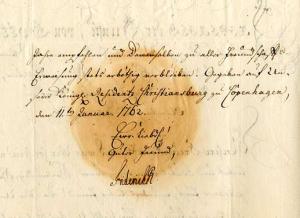 empfehlen und Denenselben zu aller Freundschafts
Erweisung stets erbötig verbleiben. Gegeben auf Un-
Königl. Residentz Christiansburg zu Copenhagen,
den 11ten Januar. 1762.
Ew. Liebd.
Guter Freund,
Friderich R